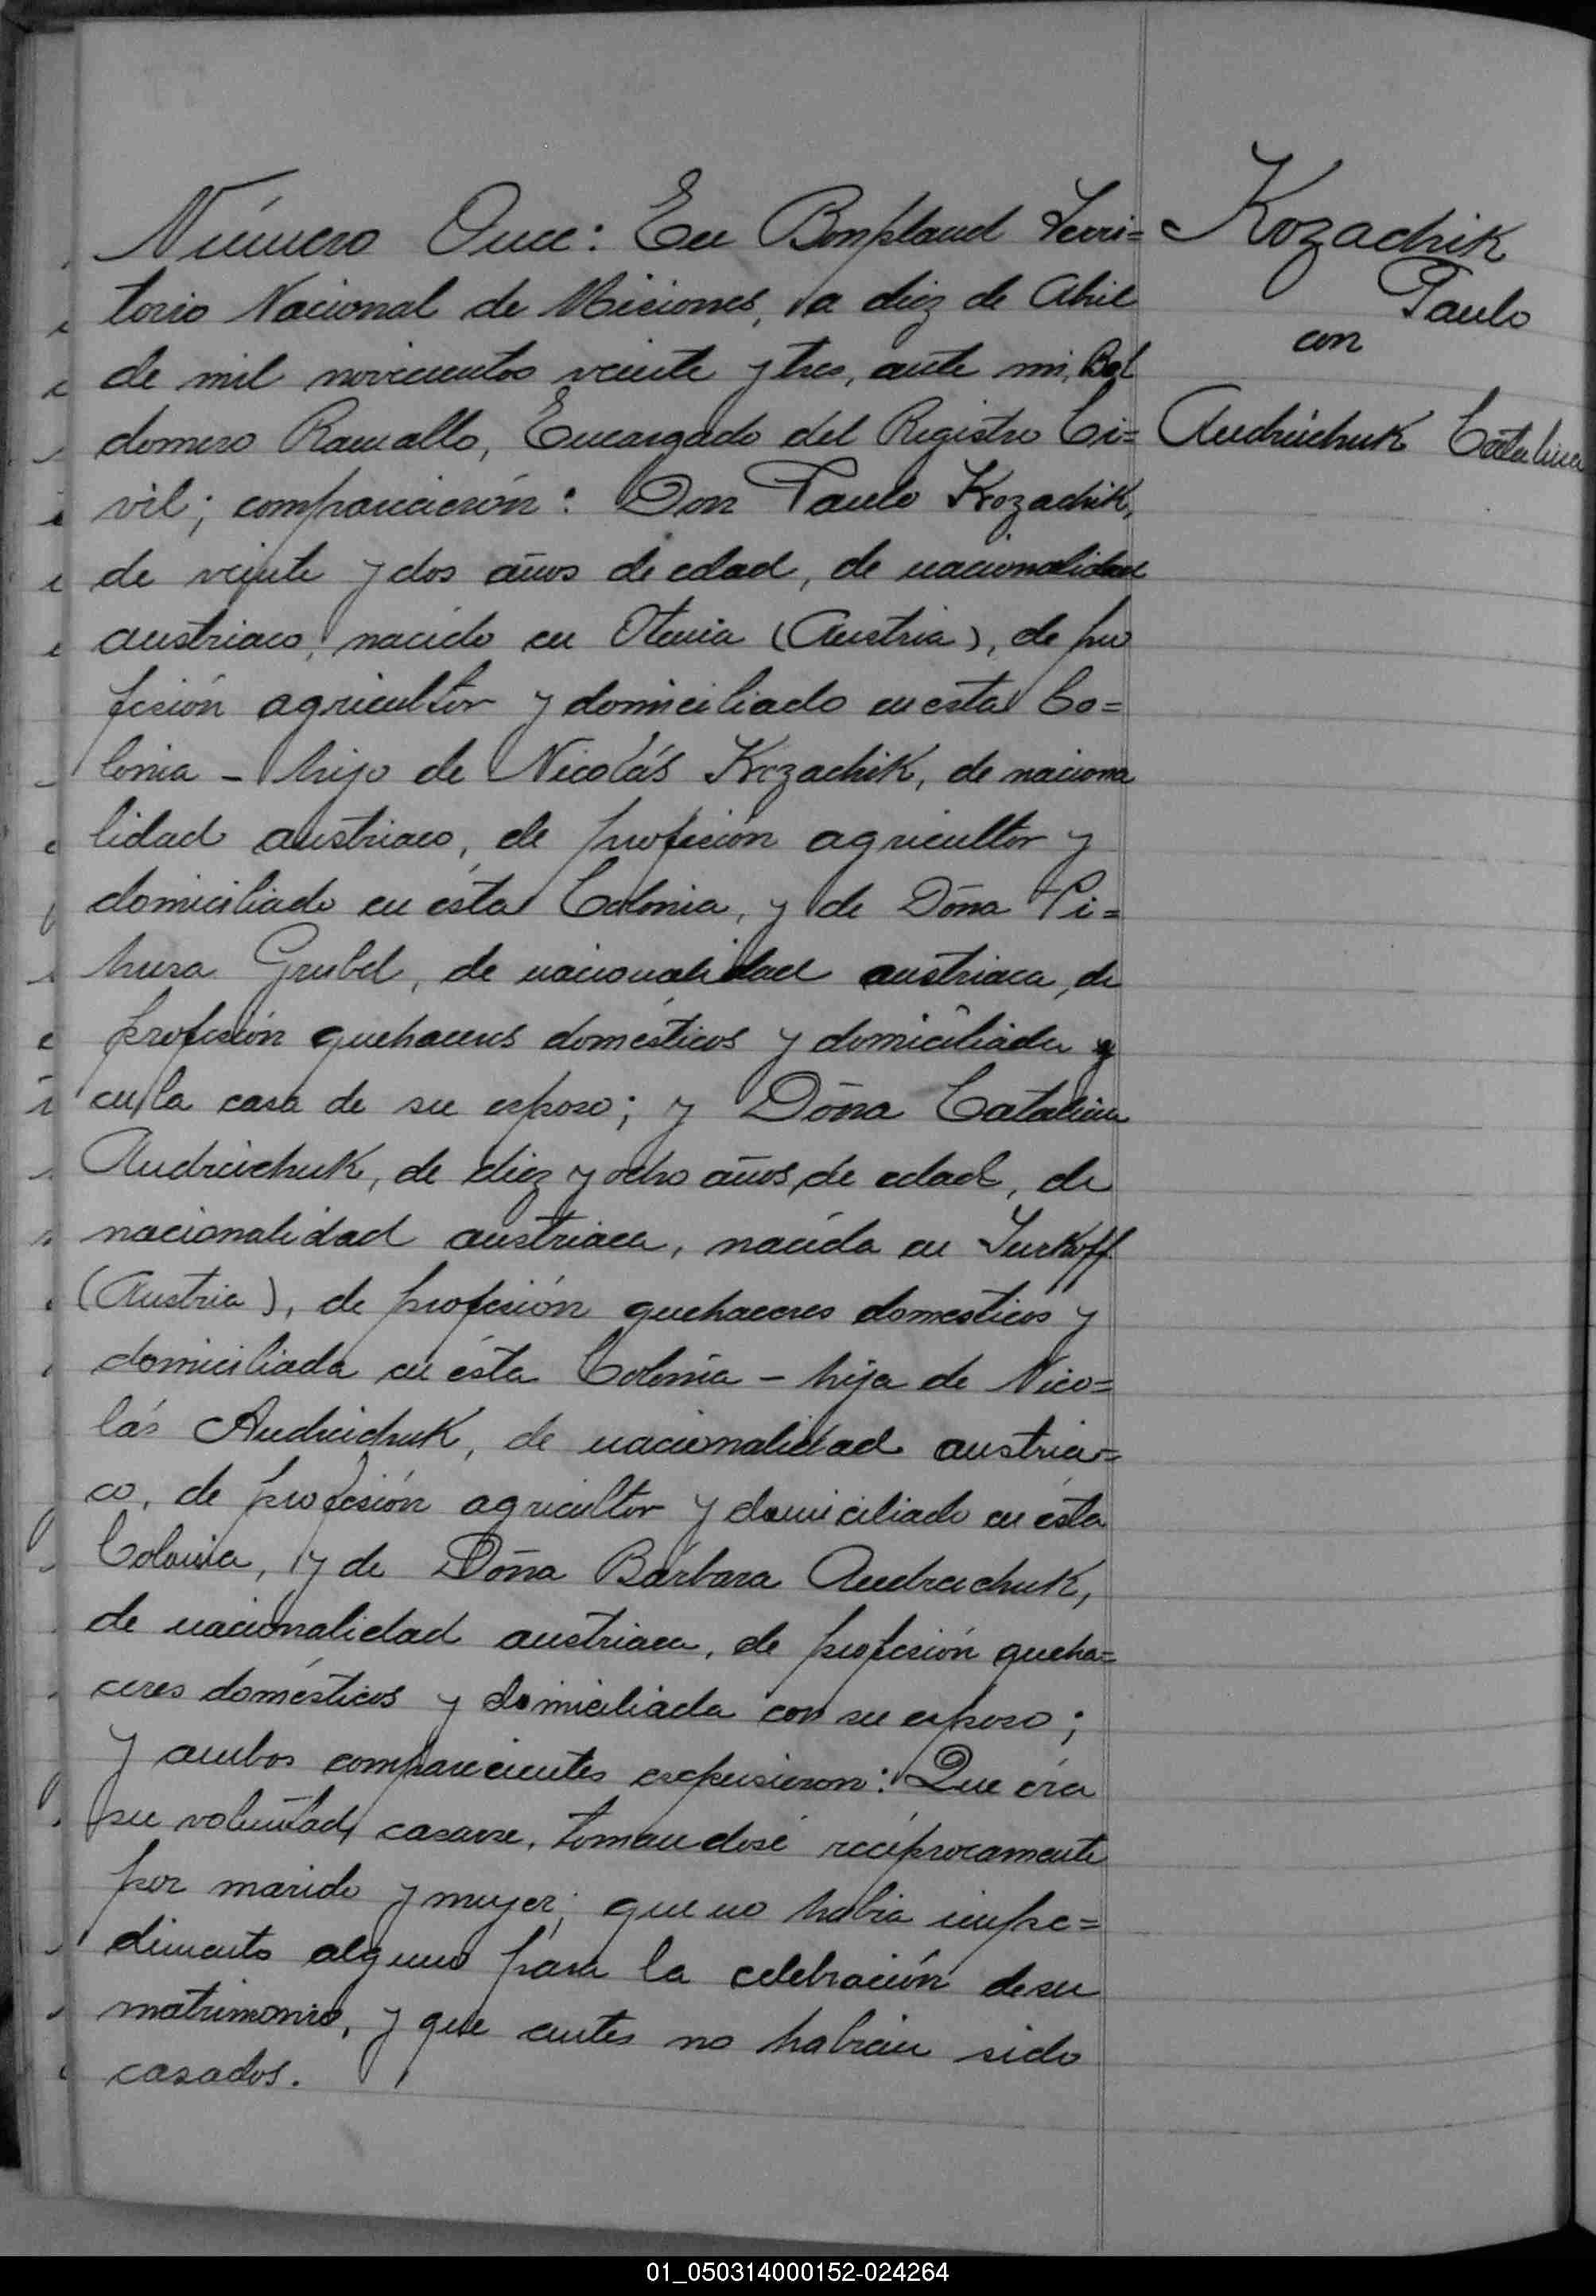 Número Once: En Bonpland Terri=
torio Nacional de Misiones, a diez de Abril
de mil novecientos veinte y tres, ante mi, Bal
domero Ramallo, Encargado del Registro Ci=
vil; comparecieron: Don Paulo Kozachik,
de veinte y dos años de edad, de nacionalidad
austriaco, nacido en Otenia (Austria), de pro
fesión agricultor y domiciliado en esta Co=
lonia - hijo de Nicolás Kozachik, de naciona
lidad austriaco, de profesión agricultor y
domiciliado en ésta Colonia, y de Doña Ti=
hura Grubel, de nacionalidad austriaca, de
profesión quehaceres domésticos y domiciliada
en la casa de su esposo; y Doña Catalina
Andreichuk, de diez y ocho años de edad, de
nacionalidad austriaca, nacida en Turkoff
(Austria), de profesión quehaceres domesticos y
domiciliada en ésta Colonia - hija de Nico=
lás Andreichuk, de nacionalidad austria=
co, de profesión agricultor y domiciliado en ésta
Colonia, y de Doña Bárbara Andreichuk,
de nacionalidad austriaca, de profesión queha=
ceres domésticos y domiciliada con su esposo;
y ambos comparecientes expusieron: Que éra
su voluntad casarse, tomandosé recíprocamente
por marido y mujer; que no habia impe=
dimento alguno para la celebración de su
matrimonio, y que antes no habian sido
casados.
Kozachik
Paulo
con
Andreichuk Catalina
01_050314000152-024264